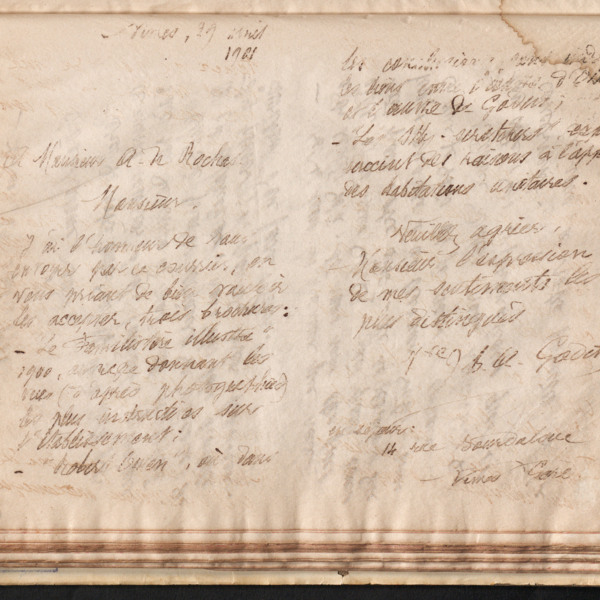 Nimes, 29 avril
1901
Monsieur A-N Roche
Monsieur.
J'ai l'honneur de vous
envoyer par ce courrier, en
vous priant de bien vouloir
les accepter, trois brochures:
- "Le Familistère illustré"
1900, donnant les
vues (d'après photographies)
les plus instructives sur
l'établissement;
- "Robert Owen", où dans
les conclusion,
les liens entre l'oeuvre d'
et l'oeuvre de Godin;
- Le
raisons à l'app
des habitations unitaires.
Veuillez agréer,
Monsieur l'expression
de mes sentiments les
plus distingués
Vve J. Bte A. Godin
14 rue Bourdaloue
Nimes Gare.